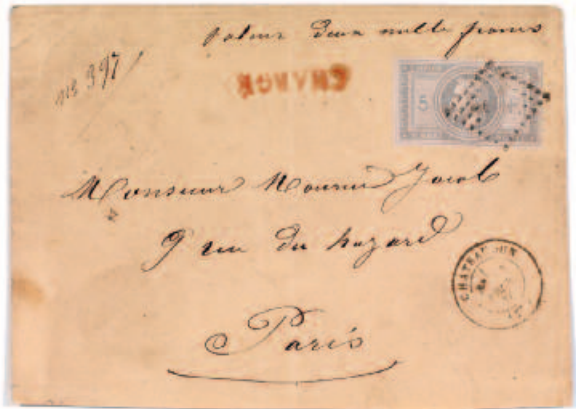 Valeur deux mille francs
No 397
CHARGÉ
5 F
Monsieur Maurice Jacob
9 rue du hazard
CHATEAUDUN
Paris